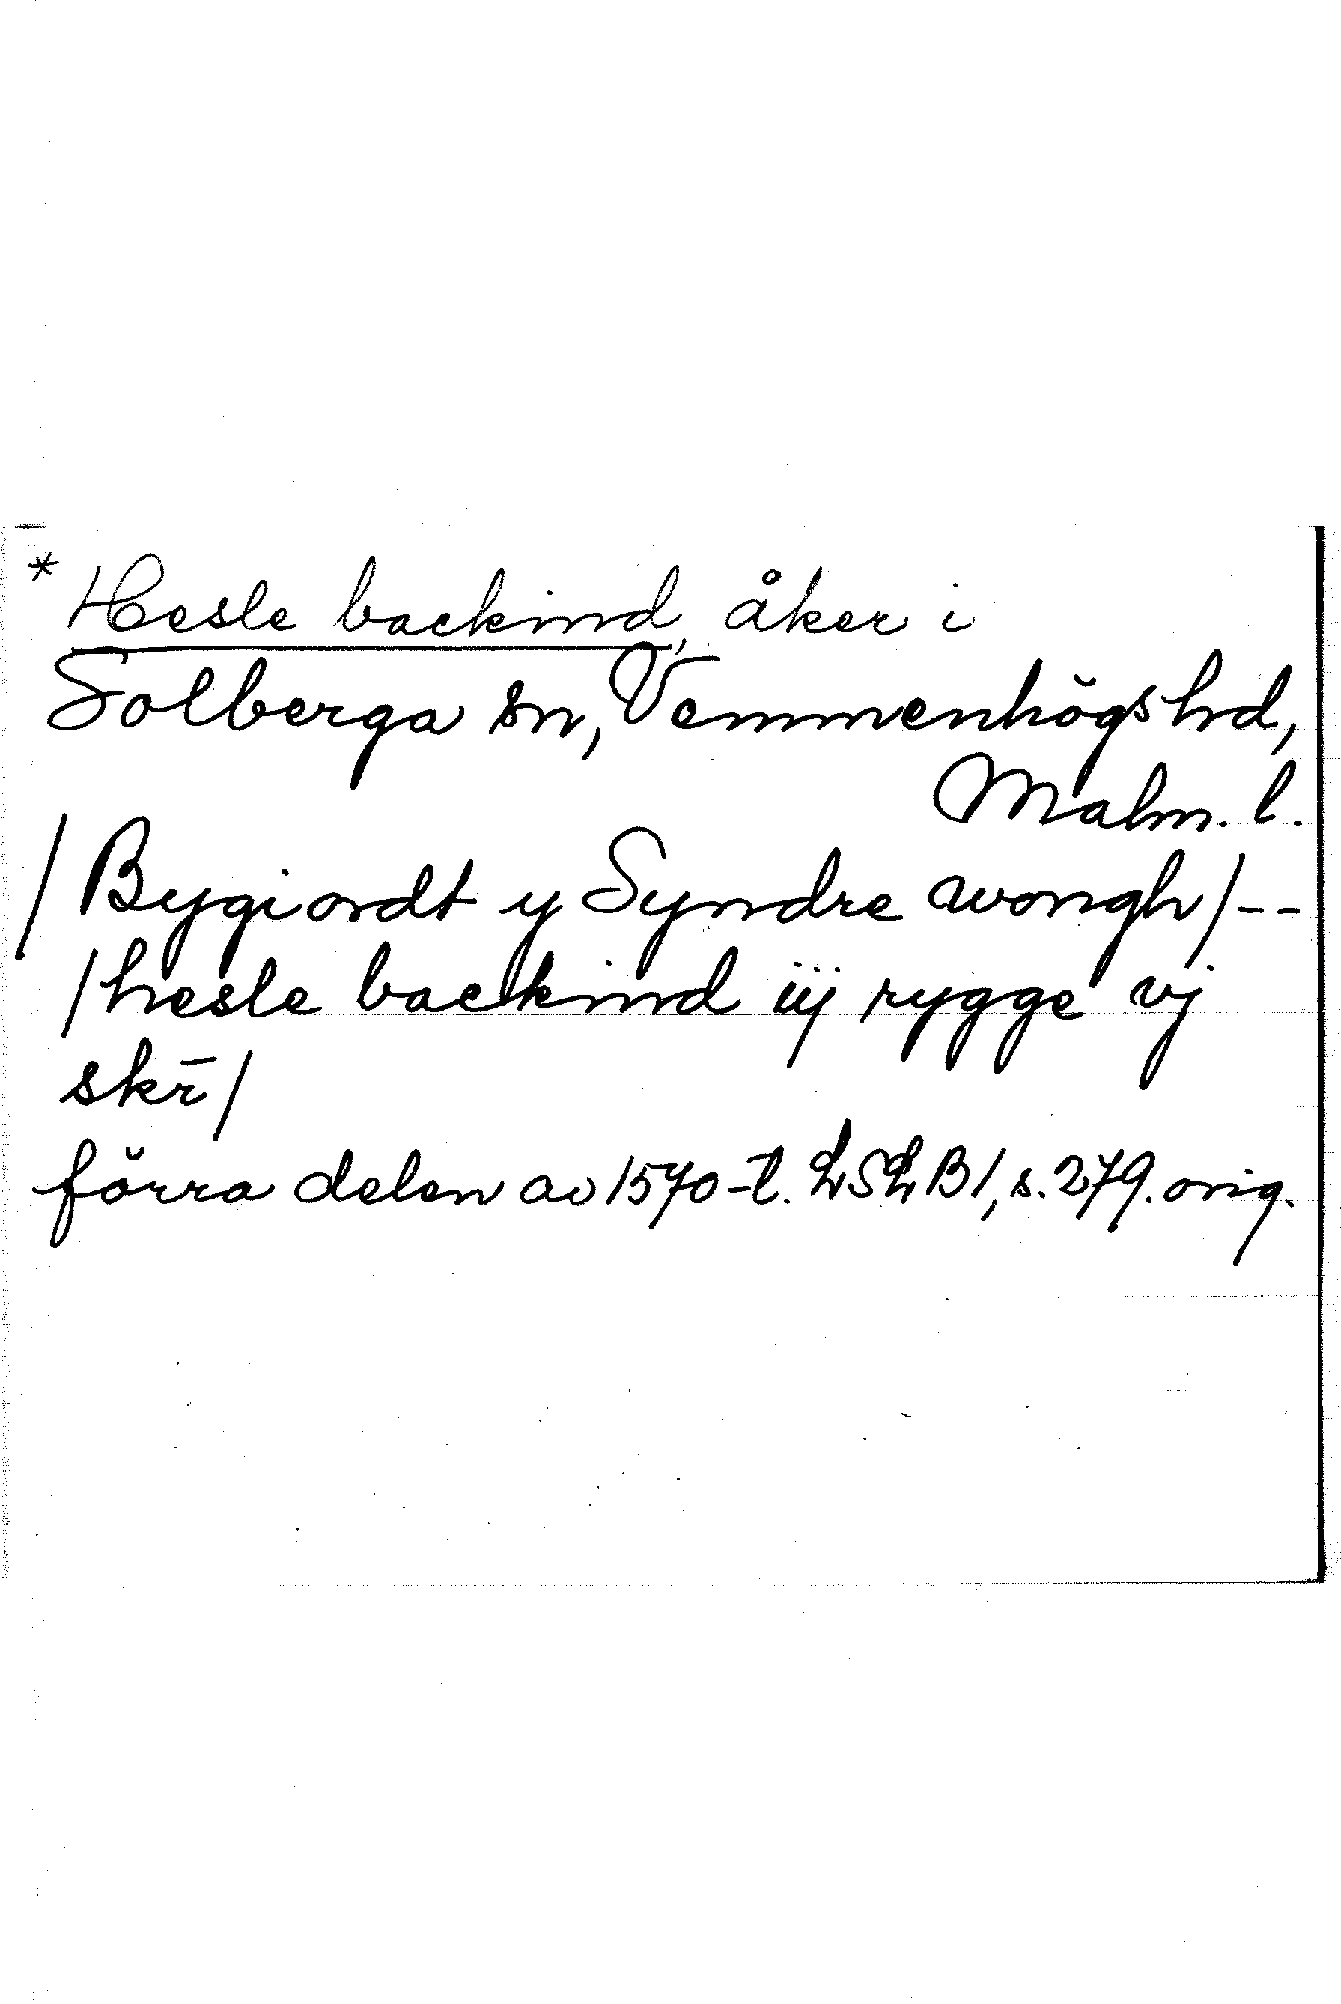 * Hesle backind, åker i
Solberga sn, Vemmenhögs hd,
Malm. l.
/ Bygiordt y Syndre wongh / --
/ hesle backind iij rygge vj
skr̄ /
förra delen av 1570-t. LSLB1, s. 279. orig.